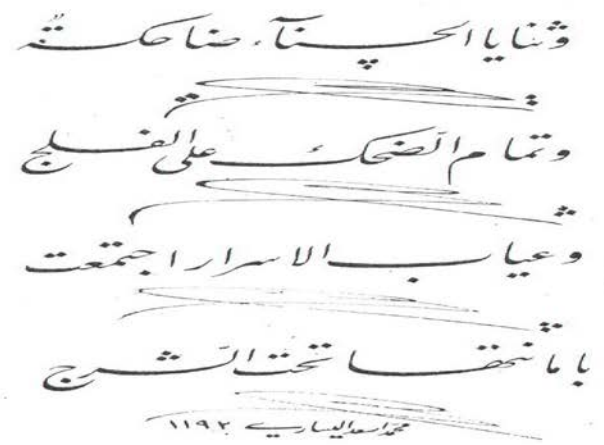 وثنايا الحسنآء ضاحكةٌ
وتمام الضحك على الفلج
وعياب الاسرار اجتمعت
بامانتها تحت الشرج
محمد اسعد اليساري ١١٩٢